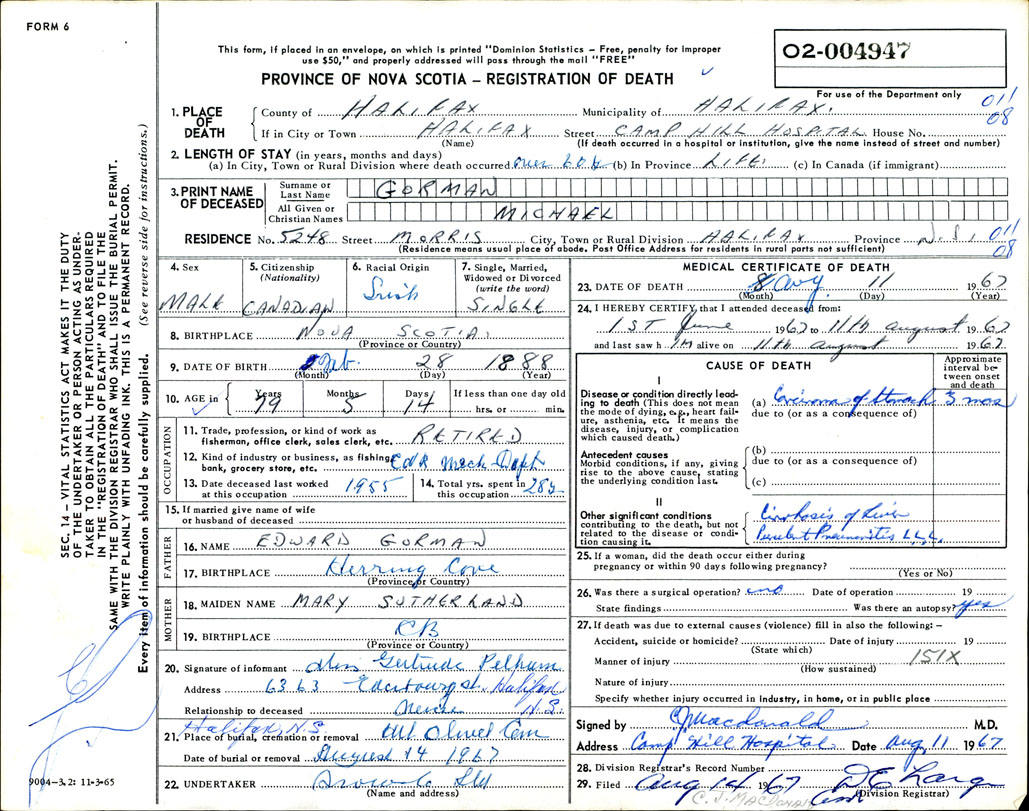 FORM 6
This form, if placed in an envelope, on which is printed "Dominion Statistics – Free, penalty for improper
use $50," and properly addressed will pass through the mail "FREE"
PROVINCE OF NOVA SCOTIA – REGISTRATION OF DEATH
02-004947
For use of the Department only
011
08
1. PLACE OF DEATH County of HALIFAX Municipality of HALIFAX.
If in City or Town HALIFAX Street CAMP HILL HOSPITAL House No.
(Name) (If death occurred in a hospital or institution, give the name instead of street and number)
2. LENGTH OF STAY (in years, months and days)
(a) In City, Town or Rural Division where death occurred over 60 y (b) In Province LIFE. (c) In Canada (if immigrant)
3. PRINT NAME OF DECEASED Surname or Last Name GORMAN
All Given or Christian Names MICHAEL
RESIDENCE No. 5248 Street MORRIS City, Town or Rural Division HALIFAX Province N.S. 011
(Residence means usual place of abode. Post Office Address for residents in rural parts not sufficient) 08
4. Sex MALE
5. Citizenship (Nationality) CANADIAN
6. Racial Origin Irish
7. Single, Married, Widowed or Divorced (write the word) SINGLE
8. BIRTHPLACE NOVA SCOTIA.
(Province or Country)
9. DATE OF BIRTH Feb. 28 1888
(Month) (Day) (Year)
10. AGE in Years 79 Months 5 Days 14 If less than one day old hrs. or min.
OCCUPATION
11. Trade, profession, or kind of work as fisherman, office clerk, sales clerk, etc. RETIRED
12. Kind of industry or business, as fishing, bank, grocery store, etc. CNR Mech Dept
13. Date deceased last worked at this occupation 1955
14. Total yrs. spent in this occupation 28y
15. If married give name of wife or husband of deceased
FATHER
16. NAME EDWARD GORMAN
17. BIRTHPLACE Herring Cove
(Province or Country)
MOTHER
18. MAIDEN NAME MARY SUTHERLAND
19. BIRTHPLACE CB
(Province or Country)
20. Signature of informant Gertrude Pelham
Address 6363 Halifax
Relationship to deceased Neice N.S.
Halifax, N.S.
21. Place of burial, cremation or removal Mt Olivet Cem
Date of burial or removal August 14 1967
22. UNDERTAKER Snow & Co Ltd
(Name and address)
MEDICAL CERTIFICATE OF DEATH
23. DATE OF DEATH Aug. 11 1967
(Month) (Day) (Year)
24. I HEREBY CERTIFY, that I attended deceased from:
1ST June 1967 to 11th august 1967
and last saw h IM alive on 11th august 1967
CAUSE OF DEATH
Approximate interval between onset and death
I
Disease or condition directly leading to death (This does not mean the mode of dying, e.g., heart failure, asthenia, etc. It means the disease, injury, or complication which caused death.)
(a) Carcinoma of Stomach 3 mos
due to (or as a consequence of)
Antecedent causes
Morbid conditions, if any, giving rise to the above cause, stating the underlying condition last.
(b)
due to (or as a consequence of)
(c)
II
Other significant conditions contributing to the death, but not related to the disease or condition causing it.
Cirrhosis of Liver
Purulent Pneumonitis L.L.L.
25. If a woman, did the death occur either during
pregnancy or within 90 days following pregnancy?
(Yes or No)
26. Was there a surgical operation? no Date of operation 19
State findings Was there an autopsy? yes
27. If death was due to external causes (violence) fill in also the following: –
Accident, suicide or homicide? Date of injury 19
(State which)
Manner of injury 151X
(How sustained)
Nature of injury
Specify whether injury occurred in industry, in home, or in public place
Signed by CJ Macdonald M.D.
Address Camp Hill Hospital Date Aug 11 1967.
28. Division Registrar's Record Number
29. Filed Aug 14 1967
(Division Registrar)
C. J. MACDONALD
9004-3.2: 11-3-65
SEC. 14 – VITAL STATISTICS ACT MAKES IT THE DUTY
OF THE UNDERTAKER OR PERSON ACTING AS UNDER-
TAKER TO OBTAIN ALL THE PARTICULARS REQUIRED
IN THE "REGISTRATION OF DEATH" AND TO FILE THE
SAME WITH THE DIVISION REGISTRAR WHO SHALL ISSUE THE BURIAL PERMIT.
WRITE PLAINLY WITH UNFADING INK. THIS IS A PERMANENT RECORD.
Every item of information should be carefully supplied. (See reverse side for instructions.)